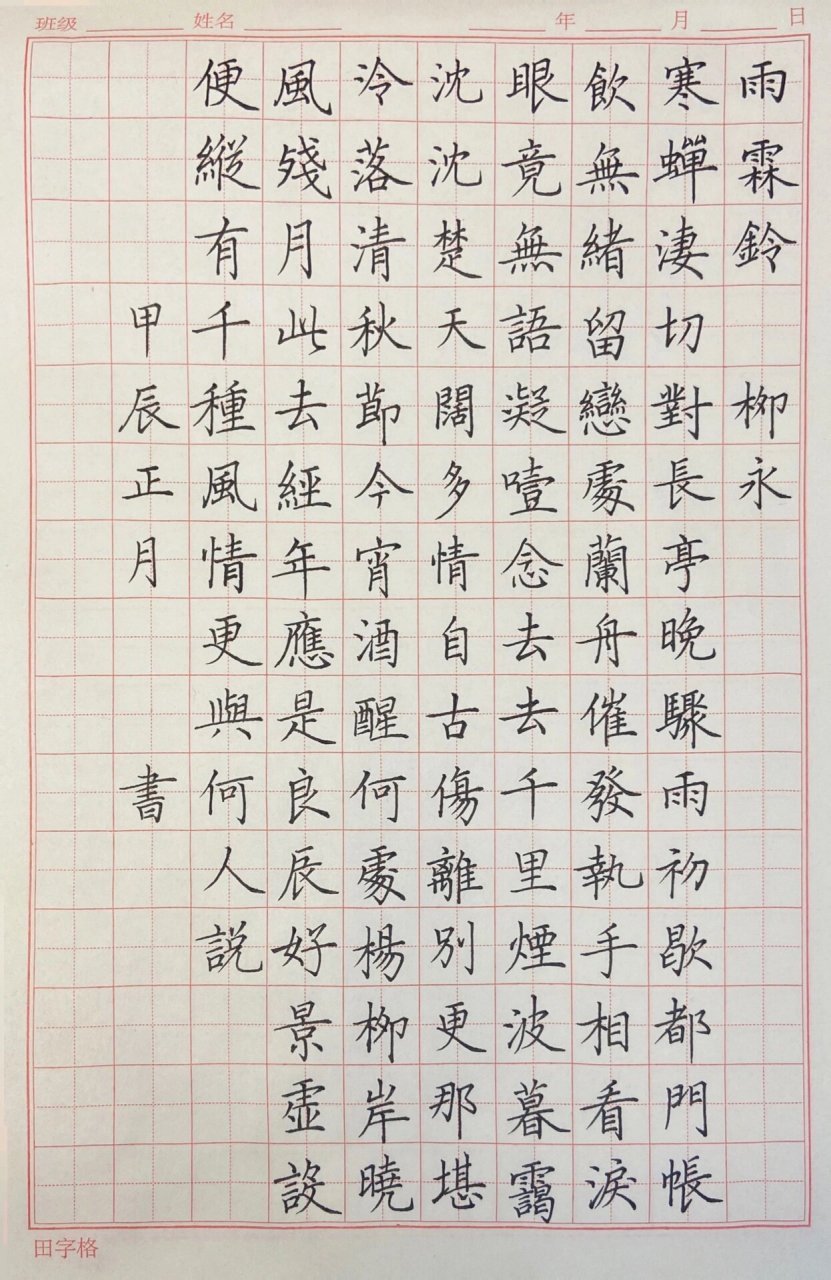 班级 姓名 年 月 日
雨霖鈴 柳永
寒蟬淒切對長亭晚驟雨初歇都門帳
飲無緒留戀處蘭舟催發執手相看淚
眼竟無語凝噎念去去千里煙波暮靄
沈沈楚天闊多情自古傷離別更那堪
冷落清秋節今宵酒醒何處楊柳岸曉
風殘月此去經年應是良辰好景虛設
便縱有千種風情更與何人説
甲辰正月 書
田字格